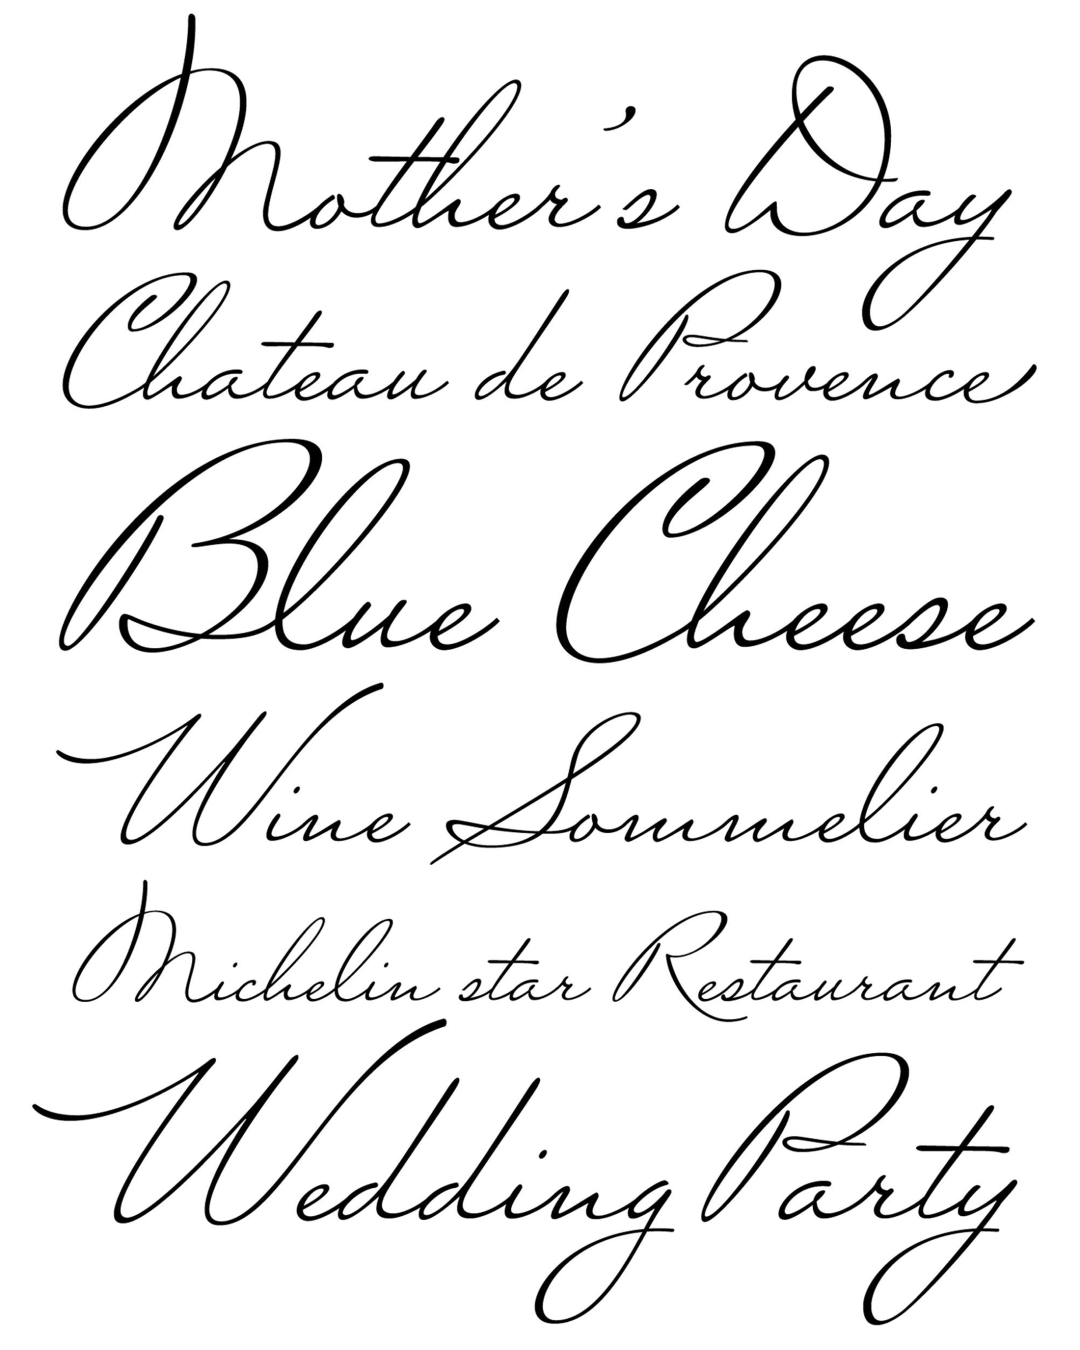 Mother's Day
Chateau de Provence
Blue Cheese
Wine Sommelier
Michelin star Restaurant
Wedding Party